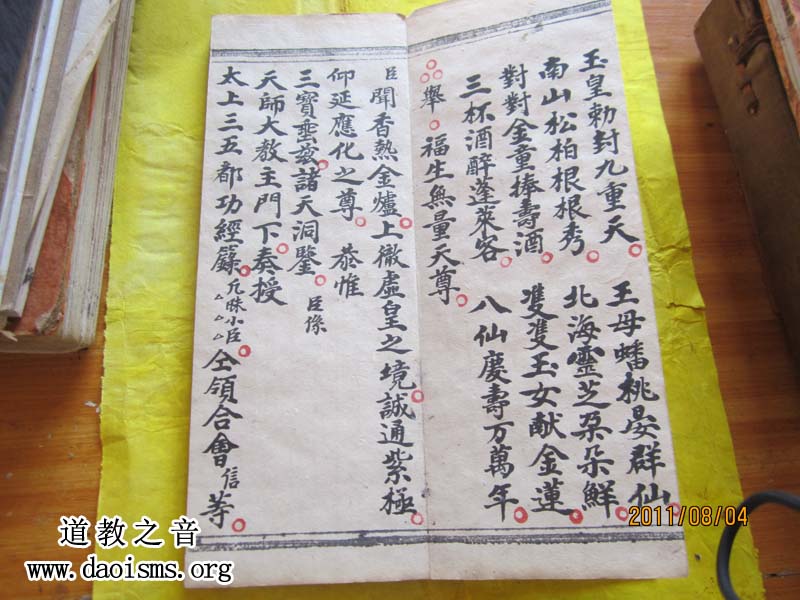 玉皇勅封九重天 王母蟠桃晏群仙
南山松柏根根秀 北海靈芝朶朵鮮
對對金童捧壽酒 雙雙玉女献金蓮
三杯酒醉蓬萊客 八仙慶壽万萬年
舉 福生無量天尊
臣聞香熱金爐上徹虛皇之境誠通紫極
仰延應化之尊 恭惟
三寶垂兹諸天洞鑒 臣係
天師大教主門下奏授
太上三五都功經籙凡昧小臣厶厶厶仝領合會信等
2011/08/04
道教之音
www.daoisms.org